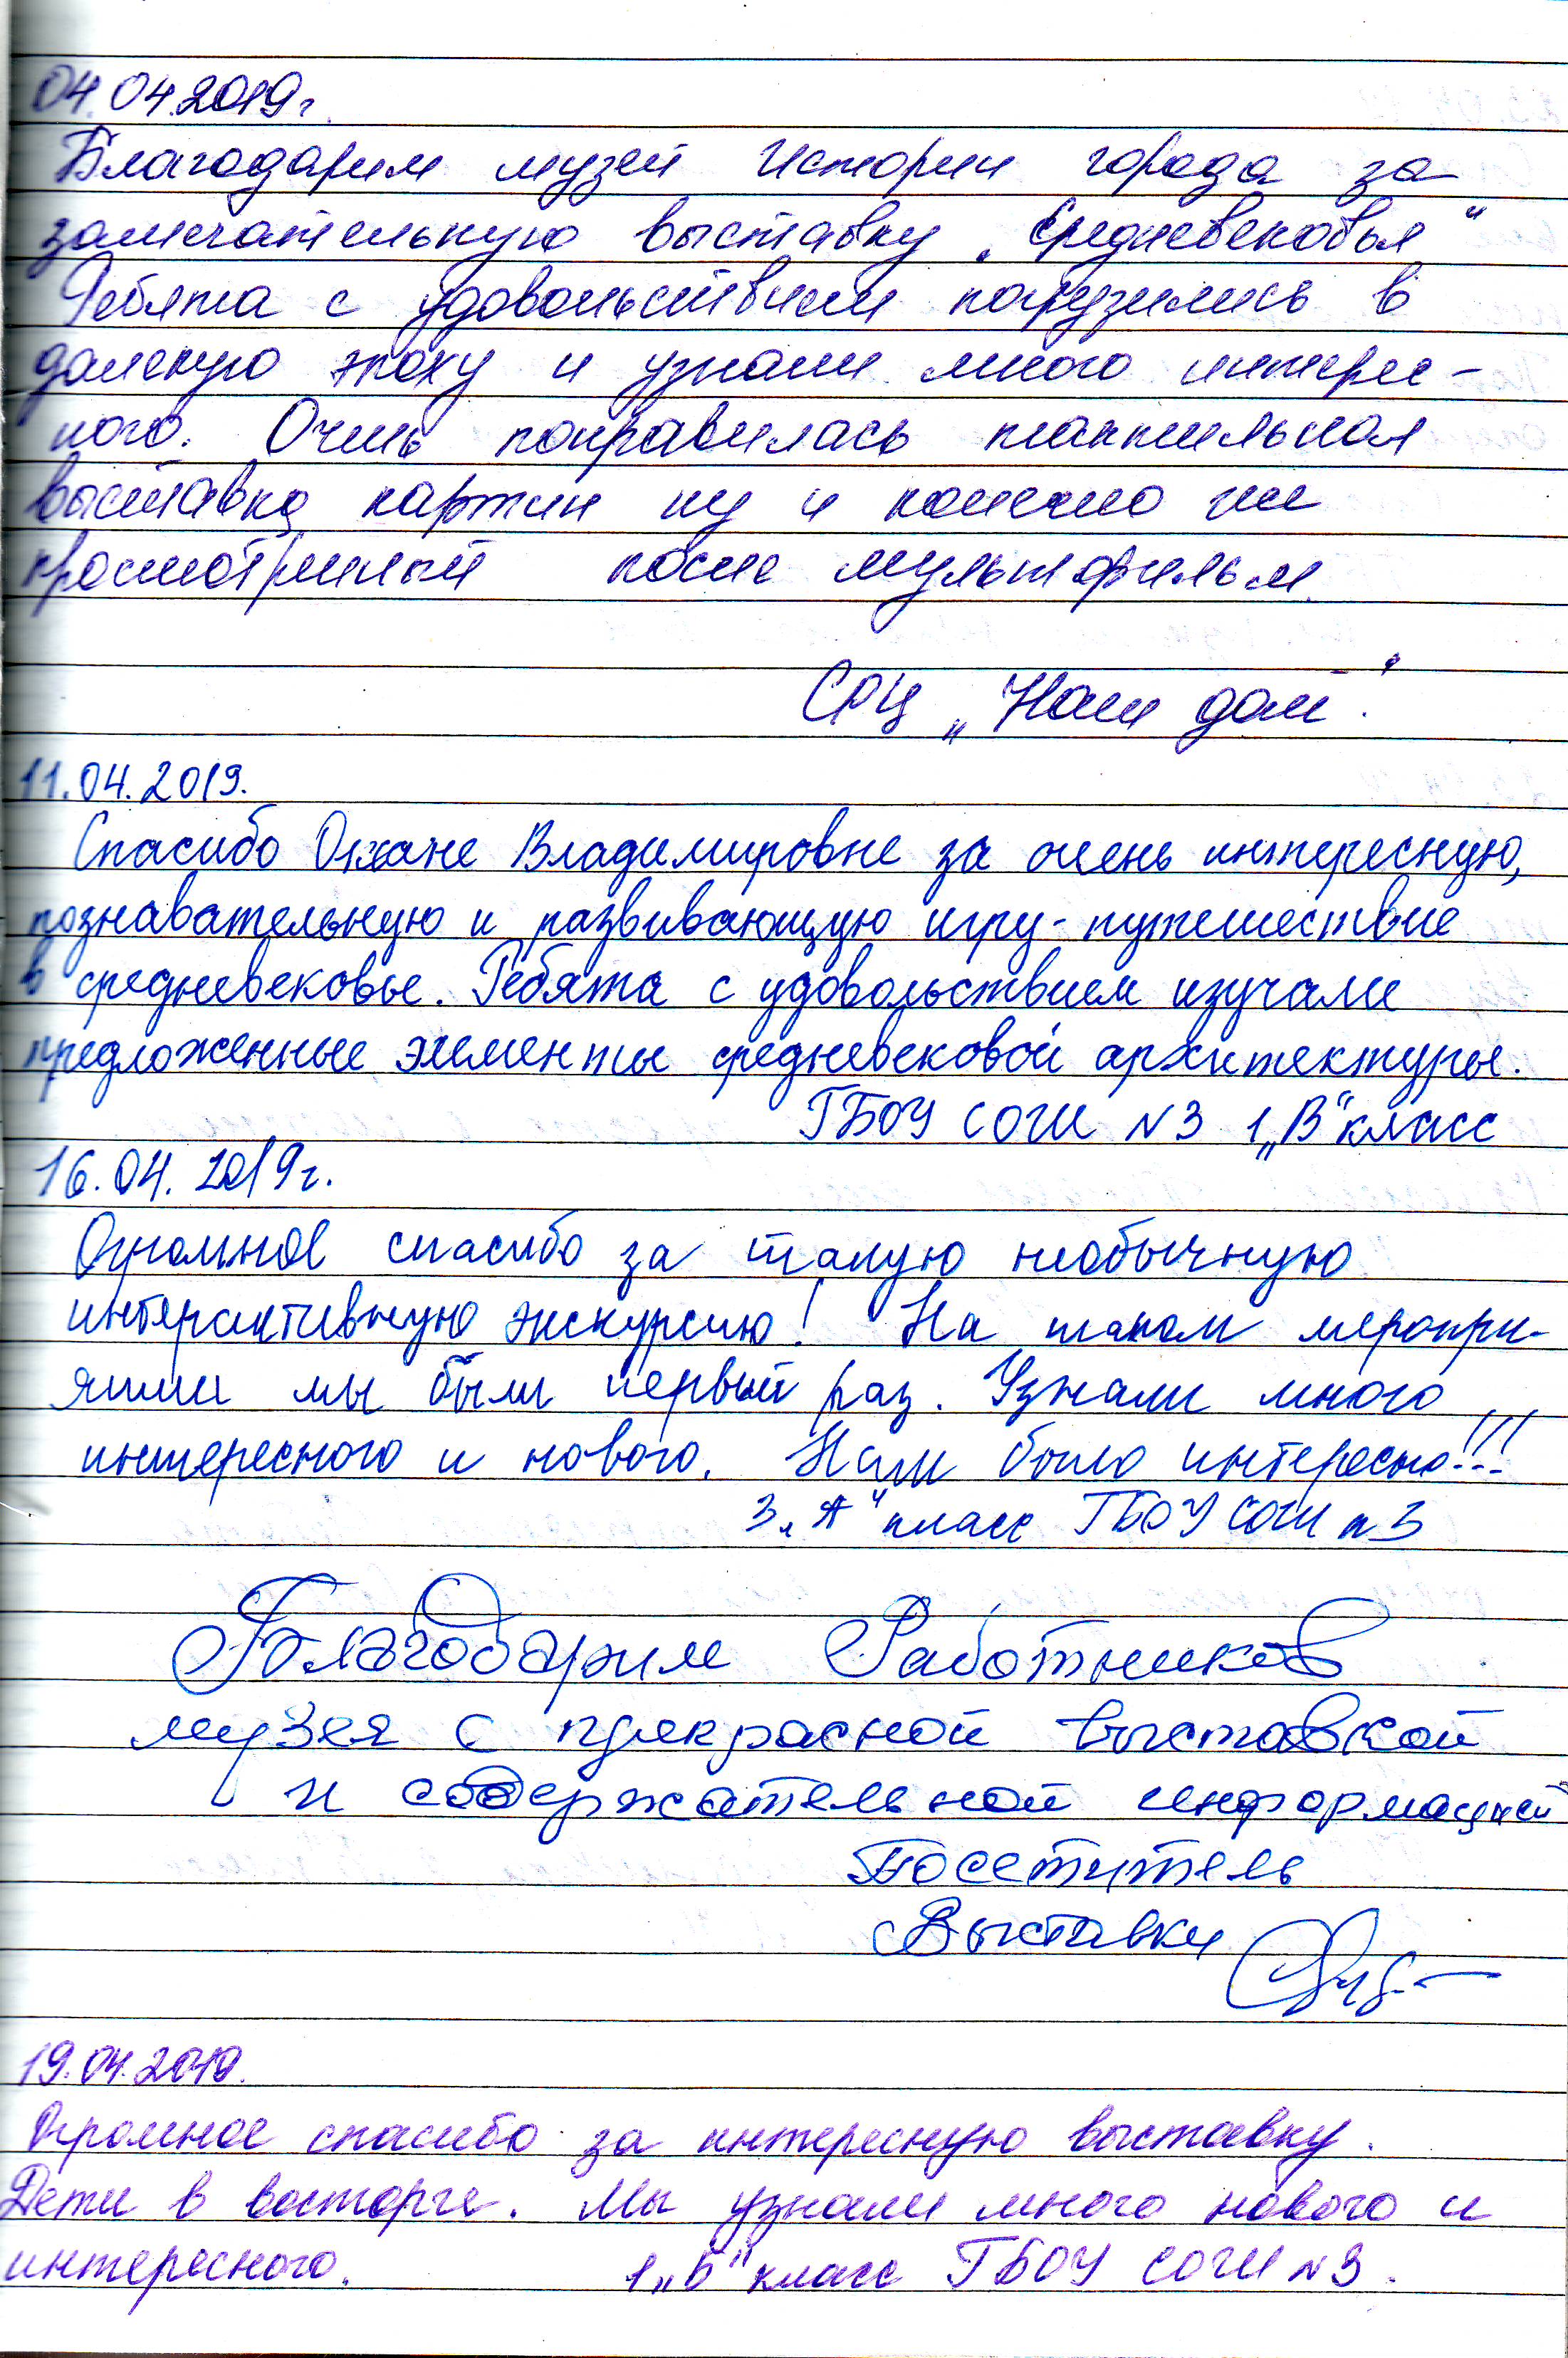 04.04.2019г.
Благодарим музей истории города за
замечательную выставку „Средневековья“
Ребята с удовольствием погрузились в
далекую эпоху и узнали много интерес-
ного. Очень понравилась тактильная
выставка картин ну и конечно же
просмотренный после мультфильм.
СРЦ „Наш дом“.
11.04.2019.
Спасибо Оксане Владимировне за очень интересную,
познавательную и развивающую игру-путешествие
в средневековье. Ребята с удовольствием изучали
предложенные элементы средневековой архитектуры.
ГБОУ СОШ №3 1„В“ класс
16.04.2019г.
Огромное спасибо за такую необычную
интерактивную экскурсию! На таком меропри-
ятии мы были первый раз. Узнали много
интересного и нового. Нам было интересно!!!
3„А“ класс ГБОУ СОШ №3
Благодарим Работников
музея с прекрасной выставкой
и содержательной информацией
Посетитель
Выставки
19.04.2019.
Огромное спасибо за интересную выставку.
Дети в восторге. Мы узнали много нового и
интересного. 1„Б“ класс ГБОУ СОШ №3.